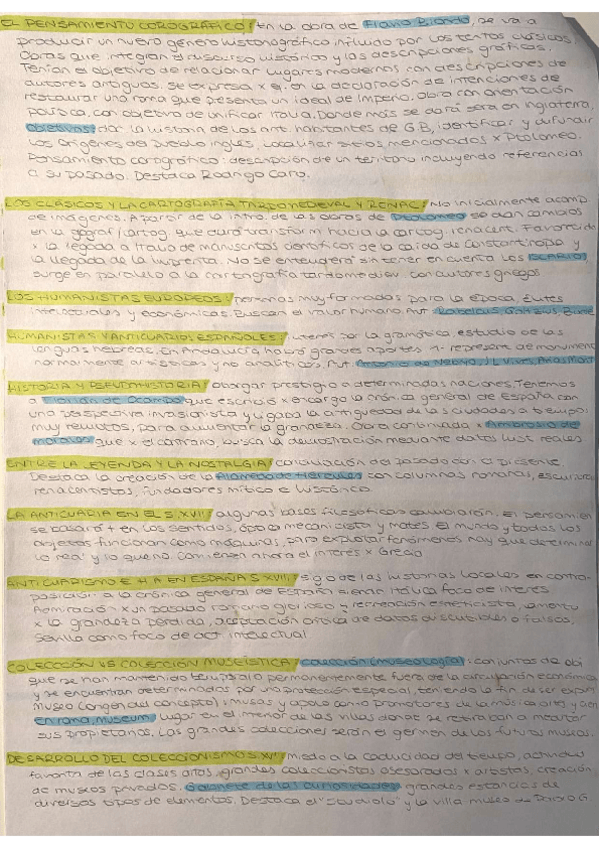 EL PENSAMIENTO COROGRÁFICO / En la obra de Flavio Biondo, se va a
producir un nuevo género historiográfico influido por los textos clásicos.
Obras que integran el discurso histórico y las descripciones gráficas.
Tenían el objetivo de relacionar lugares modernos con descripciones de
autores antiguos. Se expresa x ej. en la declaración de intenciones de
restaurar una roma que presenta un ideal de Imperio. Obra con orientación
política, con objetivo de unificar Italia. Donde más se dará será en Inglaterra,
objetivos: dar la historia de los ant. habitantes de G.B, identificar y difundir
los orígenes del pueblo inglés, localizar sitios mencionados x Ptolomeo.
Pensamiento cartográfico: descripción de un territorio incluyendo referencias
a su pasado. Destaca Rodrigo Caro.
LOS CLÁSICOS Y LA CARTOGRAFÍA TARDOMEDIEVAL Y RENAC. / No inicialmente acomp
de imágenes. A partir de la intro. de las obras de Ptolomeo se dan cambios
en la geograf. y cartog. que dará transform hacia la cartog. renacent. Favorecida
x la llegada a Italia de manuscritos científicos de la caída de Constantinopla y
la llegada de la imprenta. No se entenderá sin tener en cuenta los ISLARIOS,
surge en paralelo a la cartografía tardomediev. con autores griegos
LOS HUMANISTAS EUROPEOS: personas muy formadas para la época, élites
intelectuales y económicas. Buscan el valor humano. Aut:
HUMANISTAS Y ANTICUARIOS ESPAÑOLES / interés por la gramática, estudio de las
lenguas hebreas. En Andalucía habrá grandes aportes represent. de monument
normalmente artísticos y no analíticos. Aut. Antonio de Nebrija, J.L Vives, Arias Mont
HISTORIA Y PSEUDHISTORIA / otorgar prestigio a determinadas naciones. Tenemos
a Florián de Ocampo que escribió x encargo la crónica general de España con
una perspectiva invasionista y ligaba la antigüedad de las ciudades a tiempos
muy remotos, para aumentar la grandeza. Obra continuada x Ambrosio de
morales que x el contrario, busca la demostración mediante datos hist. reales
ENTRE LA LEYENDA Y LA NOSTALGIA / conciliación del pasado con el presente.
Destaca la creación de la Alameda de Hércules con columnas romanas, esculturas
renacentistas, fundadores mítico e histórico.
LA ANTICUARIA EN EL S. XVII / algunas bases filosóficas cambiarán. El pensamien
se basará + en los sentidos, óptica mecanicista y mates. El mundo y todos los
objetos funcionan como máquinas, para explotar fenómenos hay que determinar
lo real y lo que no. Comienza ahora el interés x Grecia
ANTICUARISMO E Hª EN ESPAÑA S XVII / siglo de las historias locales en contra-
posición a la crónica general de España siendo Itálica foco de interés
Admiración x un pasado romano glorioso y recreación esteticista, lamento
x la grandeza perdida, aceptación crítica de datos discutibles o falsos.
Sevilla como foco de act. intelectual
COLECCIÓN VS COLECCIÓN MUSEÍSTICA / colección (museología): conjuntos de obj
que se han mantenido temporal o permanentemente fuera de la circulación económica
y se encuentran determinados por una protección especial, teniendo la fin de ser expon
Museo (origen del concepto): musas y apolo como promotores de la música, arte y cien
En roma, museum: lugar en el interior de las villas donde se retiraban a meditar
sus propietarios. Las grandes colecciones serán el germen de los futuros museos.
DESARROLLO DEL COLECCIONISMO S. XVI / miedo a la caducidad del tiempo, actividad
favorita de las clases altas, grandes coleccionistas asesorados x artistas, creación
de museos privados. Gabinete de las curiosidades: grandes estancias de
diversos tipos de elementos. Destaca el "studiolo" y la villa museo de Paolo G.